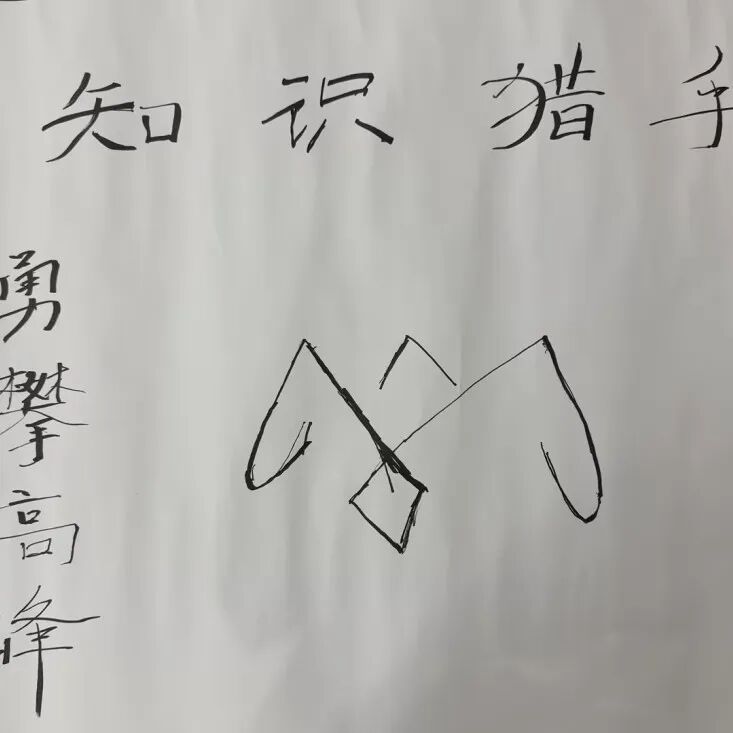 知识猎手
勇攀高峰